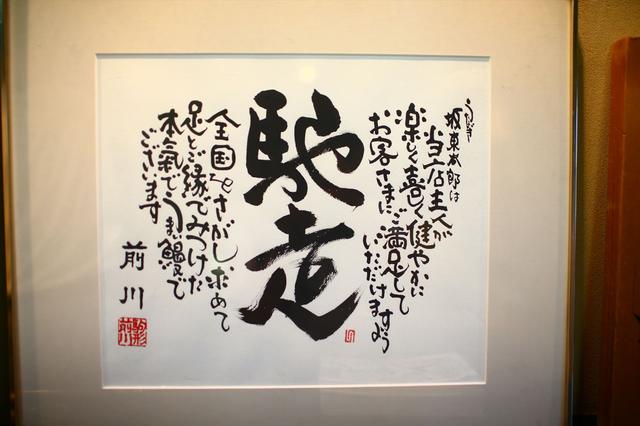 うなぎ
坂東太郎は
当店主人が
楽しく喜しく健やかに
お客さまにご満足して
いただけますよう
馳走
全国をさがし求めて
足とご縁でみつけた
本氣でうまい鰻で
ございます
前川